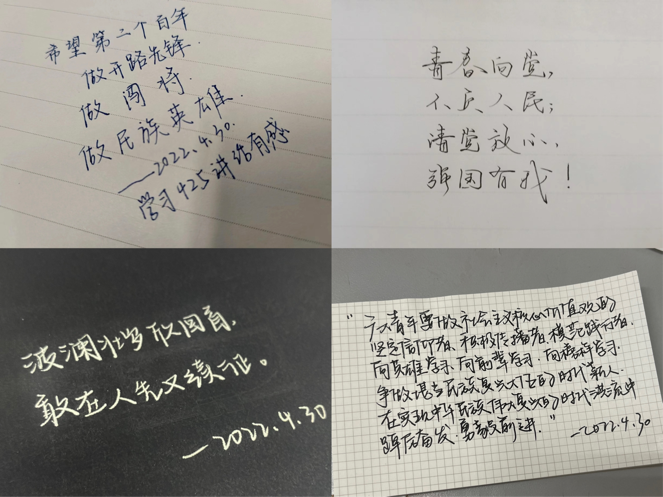 希望第二个百年
做开路先锋.
做闯将.
做民族英雄.
——2022.4.30.
学习425讲话有感
青春向党,
不负人民;
请党放心,
强国有我!
波澜壮阔取回首,
敢在人先又续证。
—2022.4.30
"广大青年要做社会主义核心价值观的
坚定信仰者、积极传播者、模范践行者,
向英雄学习、向前辈学习、向榜样学习,
争做堪当民族复兴大任的时代新人,
在实现中华民族伟大复兴的时代洪流中
踔厉奋发、勇毅前进."
—2022.4.30